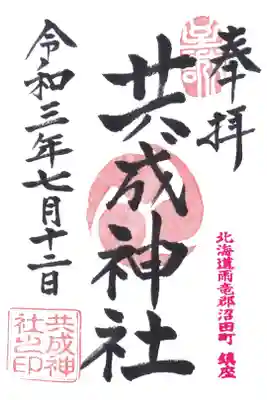 奉拝
北海道雨竜郡沼田町 鎮座
共成神社
共成神
社之印
令和三年七月十二日